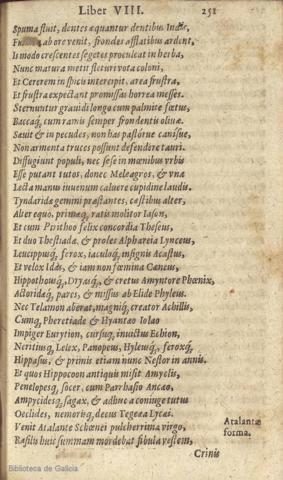 Liber VIII. 251
Spuma fluit, dentes æquantur dentibus Indis,
ab ore venit, frondes afflatibus ardent,
Is modo crescentes segetes proculcat in herba,
Nunc matura metit fleturi vota coloni,
Et Cererem in spicis intercipit, area frustra,
Et frustra expectant promissas horrea messes.
Sternuntur grauidi longo cum palmite fœtus,
Baccaq́, cum ramis semper frondentis oliuæ.
Sæuit & in pecudes, non has pastórue canísue,
Non armenta truces possunt defendere tauri.
Diffugiunt populi, nec sese in mœnibus vrbis
Esse putant tutos, donec Meleagros, & vna
Lecta manus iuuenum caluere cupidine laudis.
Tyndaridæ gemini præstantes, cæstibus alter,
Alter equo, primæq́, ratis molitor Iason,
Et cum Pirithoo felix concordia Theseus,
Et duo Thestiadæ, & proles Alphareia Lynceus,
Leucippusq́, ferox, iaculoq́, insignis Acastus,
Et velox Idas, & iam non fœmina Cæneus,
Hippothousq́, Dryasq́, & cretus Amyntore Phœnix,
Actoridæq́, pares, & missus ab Elide Phyleus.
Nec Telamon aberat, magniq́, creator Achillis,
Cumq́, Pheretiade & Hyanteo Iolao
Impiger Eurytion, cursuq́, inuictus Echion,
Naritiusq́, Lelex, Panopeus, Hyleusq́, feroxq́,
Hippasus, & primis etiam nunc Nestor in annis.
Et quos Hippocoon antiquis misit Amyclis,
Penelopesq́, socer, cum Parrhasio Ancæo,
Ampycidesq́, sagax, & adhuc a coniuge tutus
Oeclides, nemorisq́, decus Tegeæa Lycæi.
Venit Atalante Schœnei pulcherrima virgo,
Rasilis huic summam mordebat fibula vestem,
Atalantæ
forma.
Crinis
Biblioteca de Galicia